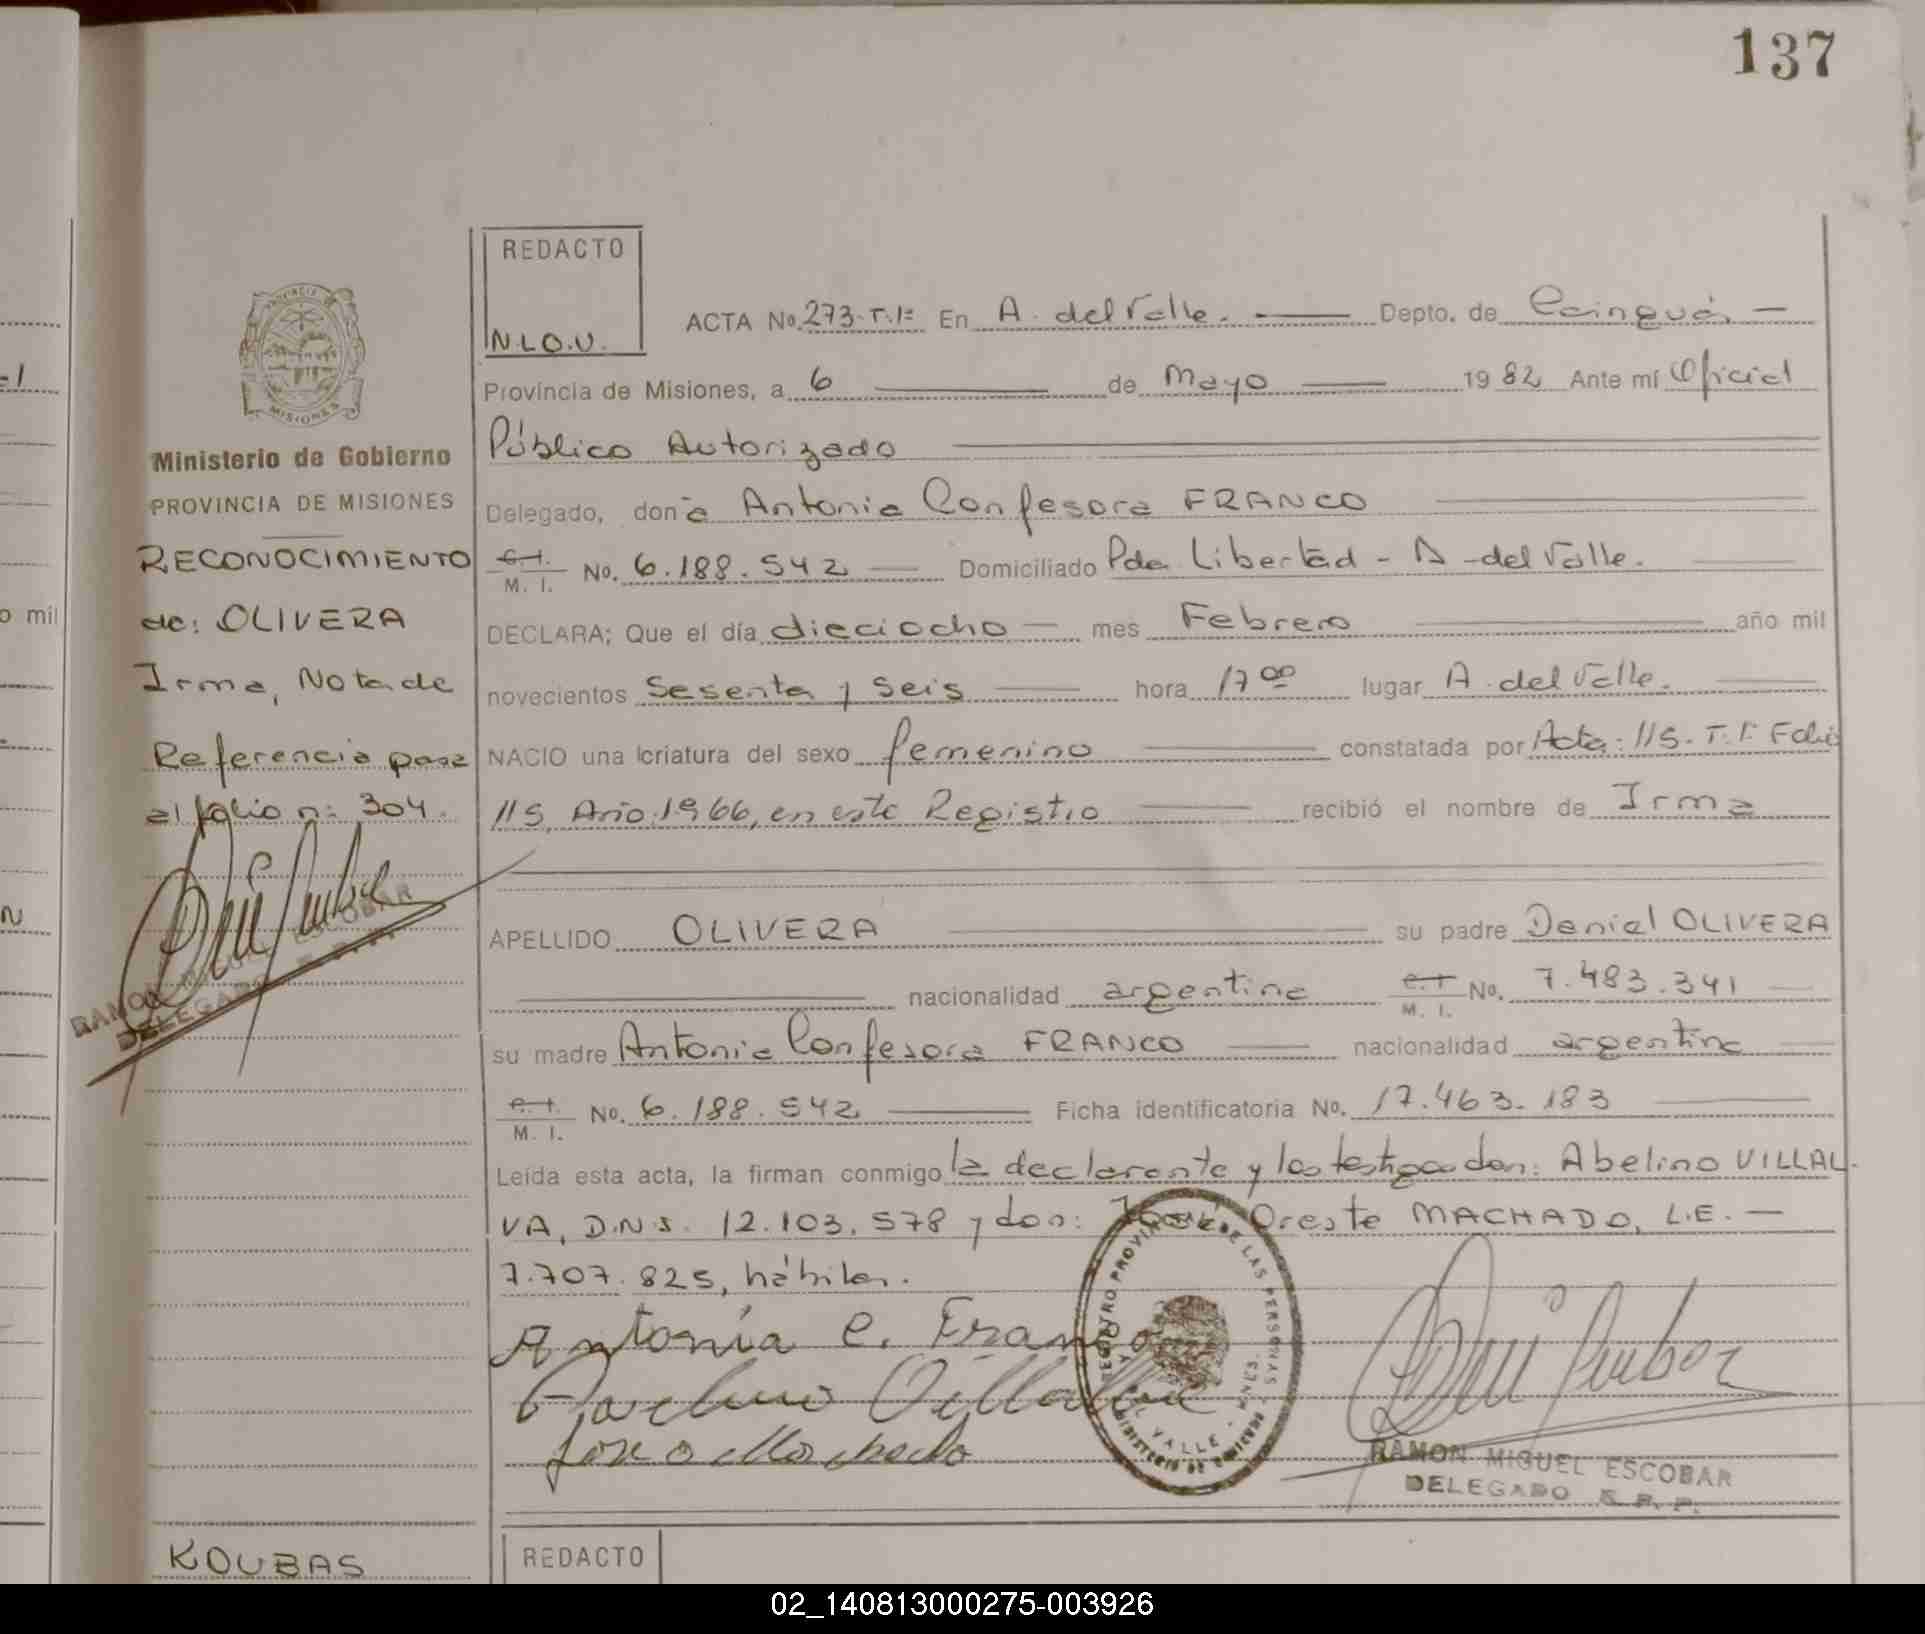 137
REDACTO
N.L.O.V.
ACTA No. 273-T.1º En A. del Valle. Depto. de Cainguás
Provincia de Misiones, a 6 de Mayo 1982 Ante mí Oficial
Público Autorizado
Delegado, doña Antonia Confesora FRANCO
C.I. M. I. No. 6.188.542 Domiciliado Pda Libertad - A. del Valle.
DECLARA; Que el día dieciocho mes Febrero año mil
novecientos Sesenta y Seis hora 17 00 lugar A. del Valle.
NACIO una criatura del sexo femenino constatada por Acta: 115. T. 1º Folio
115, Año: 1966, en este Registro recibió el nombre de Irma
APELLIDO OLIVERA su padre Daniel OLIVERA
nacionalidad argentina C.I. M. I. No. 7.483.341
su madre Antonia Confesora FRANCO nacionalidad argentina
C.I. M. I. No. 6.188.542 Ficha identificatoria No. 17.463.183
Leída esta acta, la firman conmigo la declarante y los testigos don: Abelino VILLAL-
VA, D.N.I. 12.103.578 y don: José Oreste MACHADO, L.E.
7.707.825, hábiles.
Antonia C. Franco
RAMON MIGUEL ESCOBAR
DELEGADO R. P. P.
PROVINCIA DE
MISIONES
Ministerio de Gobierno
PROVINCIA DE MISIONES
RECONOCIMIENTO
de: OLIVERA
Irma, Nota de
Referencia pasa
al folio nº 304.
RAMON MIGUEL ESCOBAR
DELEGADO
KOUBAS
REDACTO
o mil
02_140813000275-003926